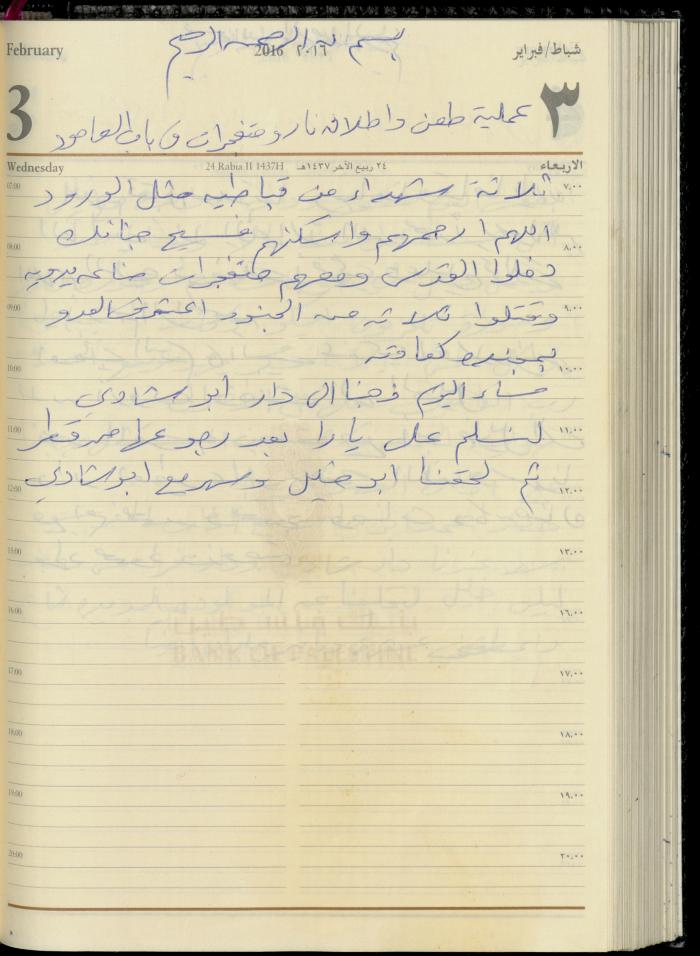 بسم الله الرحمن الرحيم
February
2016 ٢٠١٦
شباط/فبراير
3
٣
عملية طعن واطلاق نار ومتفجرات في باب العامود
Wednesday
24 Rabia II 1437H
٢٤ ربيع الآخر ١٤٣٧هـ
الاربعاء
07:00 ثلاثة شهداء من قباطيه مثل الورود ٧:٠٠
اللهم ارحمهم واسكنهم فسيح جناتك
08:00 ٨:٠٠
دخلوا القدس ومعهم متفجرات صناعه يدويه
09:00 وقتلوا ثلاثه من الجنود ٩:٠٠
العدو
بمجنده كعادته
10:00 ١٠:٠٠
مساء اليوم ذهبنا الى دار ابو شادي
11:00 لنسلم على يارا بعد رجوعها من قطر ١١:٠٠
ثم لحقنا ابو خليل وسهر مع ابو شادي
12:00 ١٢:٠٠
13:00 ١٣:٠٠
16:00 ١٦:٠٠
BANK OF PALESTINE
17:00 ١٧:٠٠
18:00 ١٨:٠٠
19:00 ١٩:٠٠
20:00 ٢٠:٠٠